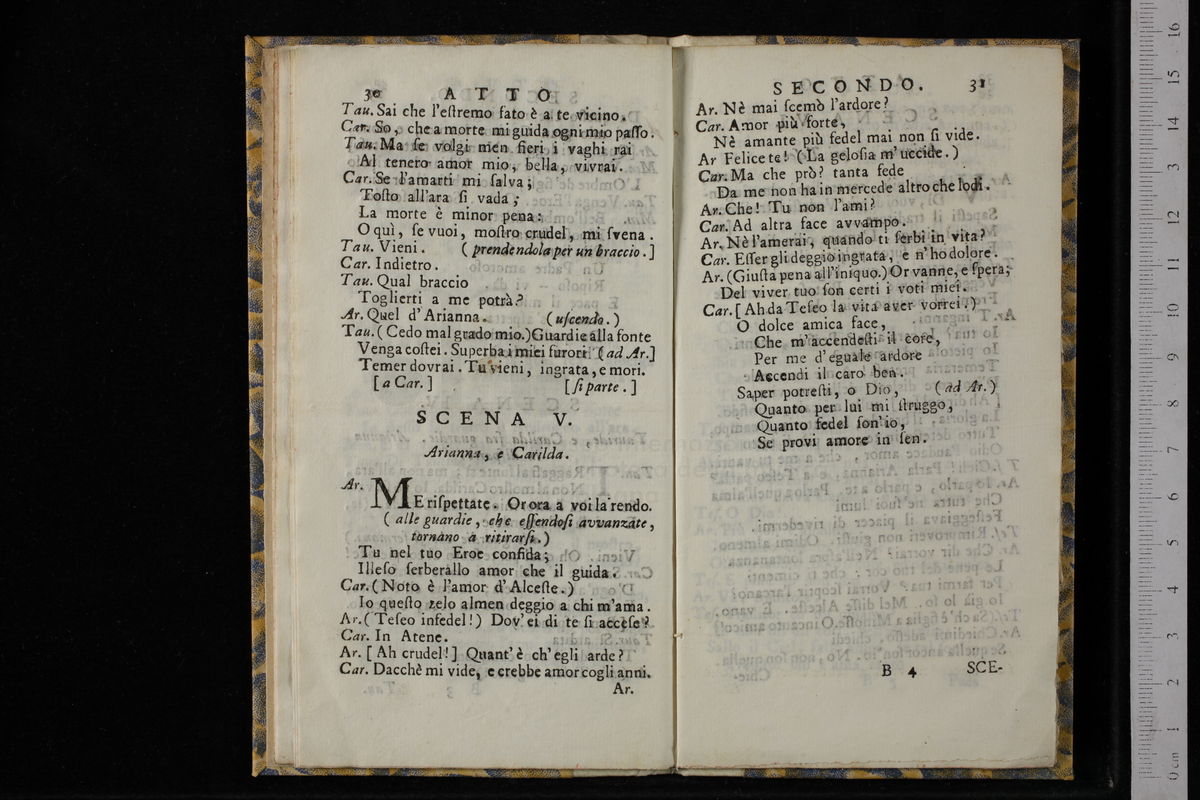 30 ATTO
Tau. Sai che l'eſtremo fato è a te vicino.
Car. So, che a morte mi guida ogni mio paſſo.
Tau. Ma ſe volgi men fieri i vaghi rai
Al tenero amor mio, bella, vivrai.
Car. Se l'amarti mi ſalva;
Toſto all'ara ſi vada;
La morte è minor pena:
O quì, ſe vuoi, moſtro crudel, mi ſvena.
Tau. Vieni. (prendendola per un braccio.]
Car. Indietro.
Tau. Qual braccio
Toglierti a me potrà?
Ar. Quel d'Arianna. (uſcendo.)
Tau. (Cedo mal grado mio.) Guardie alla fonte
Venga coſtei. Superba i miei furori [ad Ar.]
Temer dovrai. Tu vieni, ingrata, e mori.
[a Car.] [ſi parte.]
SCENA V.
Arianna, e Carilda.
Ar. ME riſpettate. Or ora a voi la rendo.
(alle guardie, che eſſendoſi avvanzate,
tornano a ritirarſi.)
Tu nel tuo Eroe confida;
Illeſo ſerberallo amor che il guida.
Car. (Noto è l'amor d'Alceſte.)
Io queſto zelo almen deggio a chi m'ama.
Ar. (Teſeo infedel!) Dov' ei di te ſi acceſe?
Car. In Atene.
Ar. [Ah crudel!] Quant' è ch' egli arde?
Car. Dacchè mi vide, e crebbe amor cogli anni.
Ar.
SECONDO. 31
Ar. Nè mai ſcemò l'ardore?
Car. Amor più forte,
Nè amante più fedel mai non ſi vide.
Ar Felice te! (La geloſia m'uccide.)
Car. Ma che prò? tanta fede
Da me non ha in mercede altro che lodi.
Ar. Che! Tu non l'ami?
Car. Ad altra face avvampo.
Ar. Nè l'amerai, quando ti ſerbi in vita?
Car. Eſſer gli deggio ingrata, e n'ho dolore.
Ar. (Giuſta pena all'iniquo.) Or vanne, e ſpera;
Del viver tuo ſon certi i voti miei.
Car. [Ah da Teſeo la vita aver vorrei!)
O dolce amica face,
Che m'accendeſti il core,
Per me d'eguale ardore
Accendi il caro ben.
Saper potreſti, o Dio, (ad Ar.)
Quanto per lui mi ſtruggo,
Quanto fedel ſon'io,
Se provi amore in ſen.
B 4 SCE-
0 cm 1 2 3 4 5 6 7 8 9 10 11 12 13 14 15 16